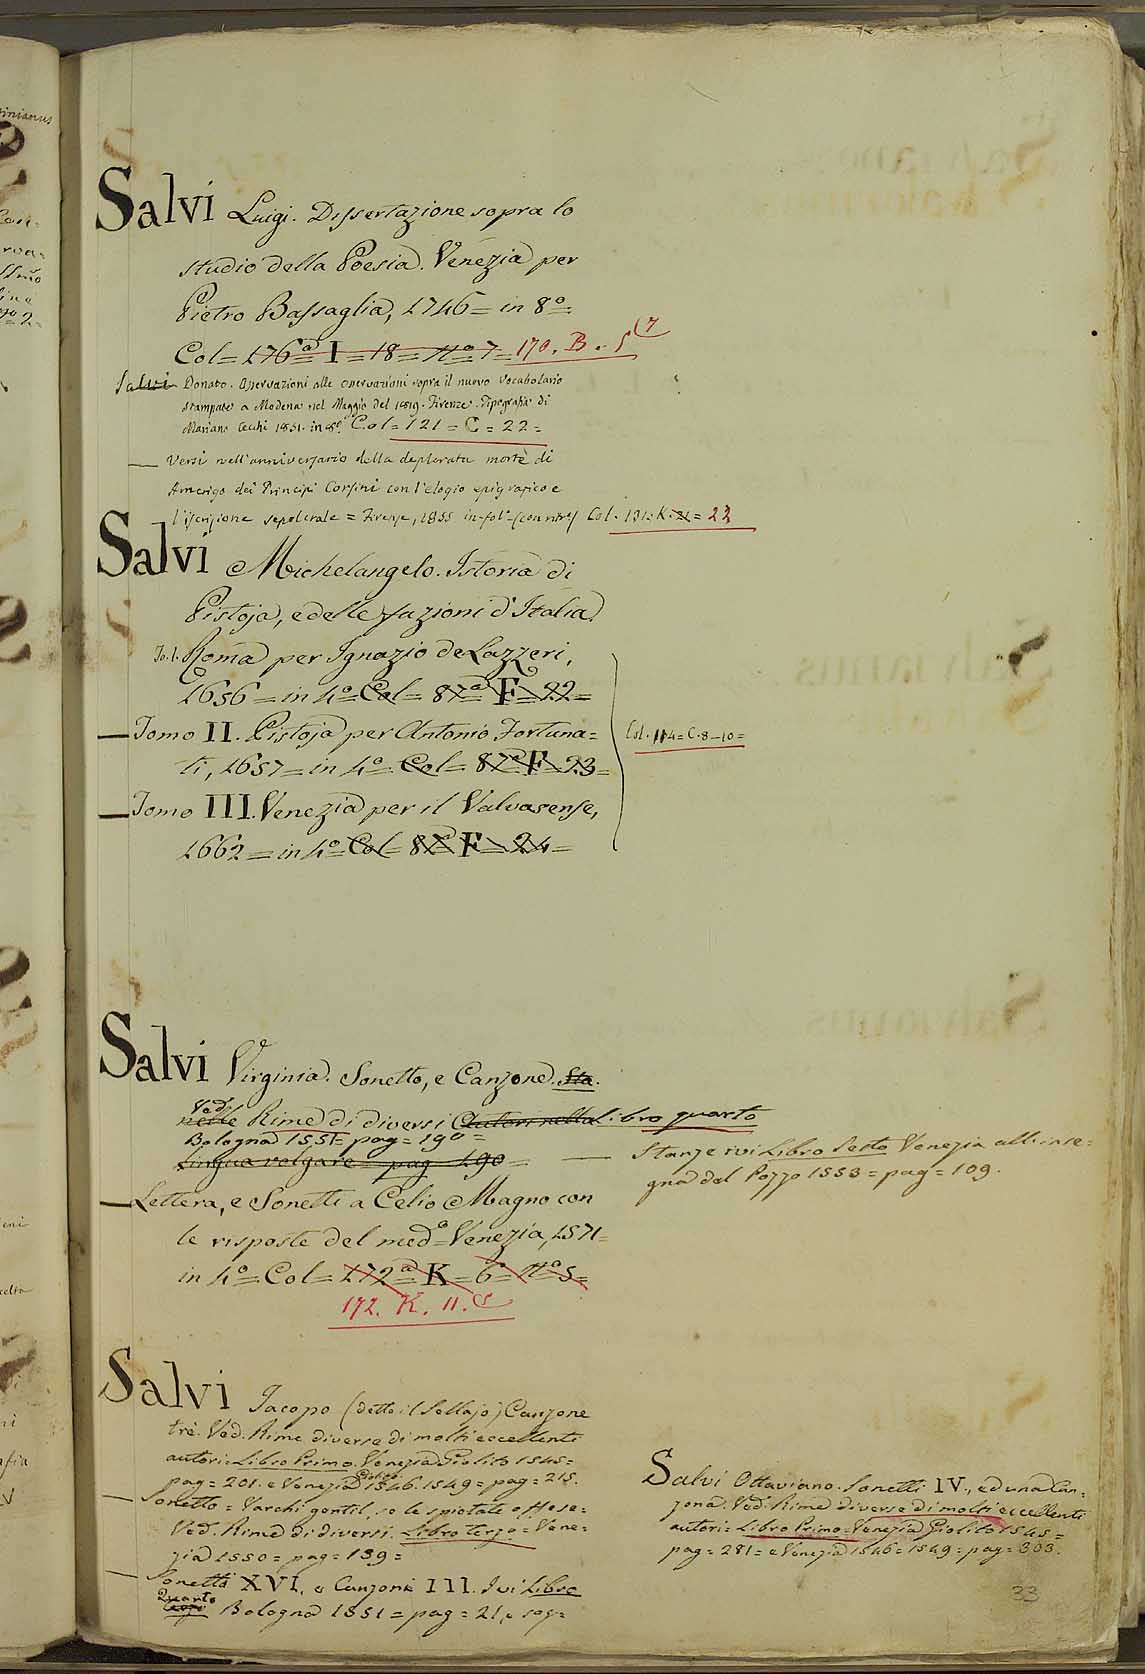 Salvi Luigi. Dissertazione sopra lo
studio della Poesia. Venezia per
Pietro Bassaglia, 1746 = in 8º =
Col = 176ª = I = 18 = Nº 7 = 170. B. 5 (7
Salvi Donato. Osservazioni alle osservazioni sopra il nuovo vocabolario
stampate a Modena nel Maggio del 1819. Firenze. Tipografia di
Mariano Cecchi 1851. in 8º. Col = 121 = C = 22 =
— Versi nell'anniversario della deplorata morte di
Amerigo dei Principi Corsini con l'elogio epigrafico e
l'iscrizione sepolcrale = Firenze, 1855 in-folº Col. 131 = K. = 22
Salvi Michelangelo. Istoria di
Pistoja, e delle fazioni d'Italia
To. I. Roma per Ignazio de Lazzeri,
1656 = in 4º = Col = 87ª F = 22 =
— Tomo II. Pistoja per Antonio Fortuna=
ti, 1657 = in 4º = Col = 87ª F = 23 =
Col. 114 = C. 8 – 10 =
— Tomo III. Venezia per il Valvasense,
1662 = in 4º = Col = 87ª F = 24 =
Salvi Virginia. Sonetto, e Canzone. Sta.
Ved.
nelle Rime di diversi Autori nella Libro quarto
Bologna 1551 = pag = 190 =
lingua volgare = pag 190 =
— Stanze ivi Libro Sesto Venezia all'inse=
gna del Pozzo 1553 = pag = 109.
— Lettera, e Sonetti a Celio Magno con
le risposte del medº = Venezia, 1571 =
in 4º = Col = 172ª = K = 6 = Nº 5 =
172. K. 11. C
Salvi Jacopo (detto il Sellajo) Canzone
tre. Ved. Rime diverse di molti eccellenti
autori. Libro Primo. Venezia Giolito 1545 =
pag = 201. e Venezia Giolito 1546. 1549 = pag = 215.
— Sonetto = Varchi gentil, se le spietate offese =
Ved. Rime di diversi. Libro terzo = Vene=
zia 1550 = pag = 139 =
— Sonetti XVI. e Canzoni III. Ivi Libro
Quarto Bologna 1551 = pag = 21, e seg =
Salvi Ottaviano. Sonetti IV., ed una Can=
zona. Ved. Rime diverse di molti eccellenti
autori = Libro Primo = Venezia Giolito 1545 =
pag = 281 = e Venezia 1546 = 1549 = pag = 303.
33